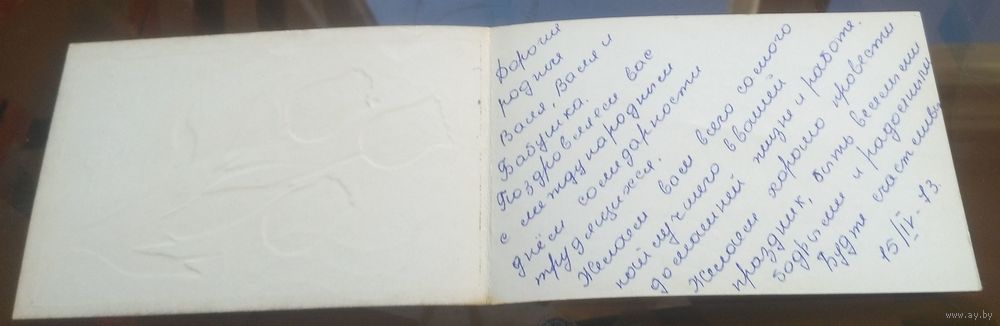 Дорогия
родные
Валя, Ваня и
Бабушка.
Поздровляем вас
с международным
днём солидарности
трудящихся.
Желаем вам всего самого
наилучшего в вашей
домашней жизне и работе.
Желаем хорошо провести
праздник, быть веселыми
бодрыми и радосными
Будте счастливы
15/IV-73.
www.ay.by